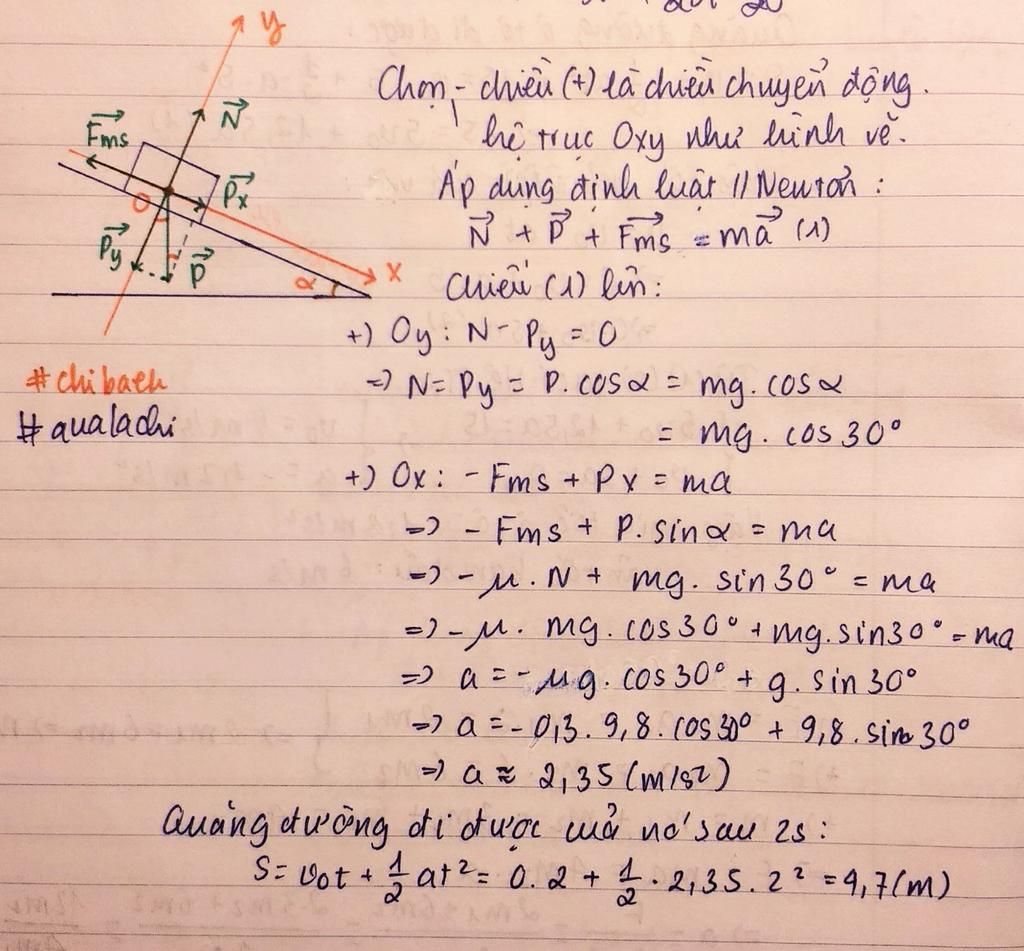 y
N
Fms
Px
O
Py
P
α
x
Chọn - chiều (+) là chiều chuyển động.
hệ trục Oxy như hình vẽ.
Áp dụng định luật II Newton :
N + P + Fms = ma (1)
Chiếu (1) lên:
+) Oy : N - Py = 0
=) N = Py = P. cosα = mg. cosα
= mg. cos 30°
#chibach
#aualachi
+) Ox : - Fms + Px = ma
=) - Fms + P. sinα = ma
=) - μ. N + mg. sin 30° = ma
=) - μ. mg. cos 30° + mg. sin 30° = ma
=) a = - μg. cos 30° + g. sin 30°
=) a = - 0,3. 9,8. cos 30° + 9,8. sin 30°
=) a ≈ 2,35 (m/s2)
Quãng đường đi được của nó sau 2s :
S = v0t + 1/2 at² = 0. 2 + 1/2 . 2,35. 2² = 4,7 (m)